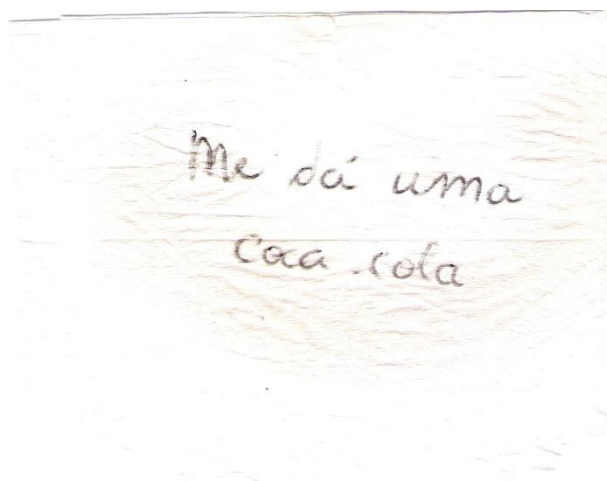 Me dá uma
coca cola